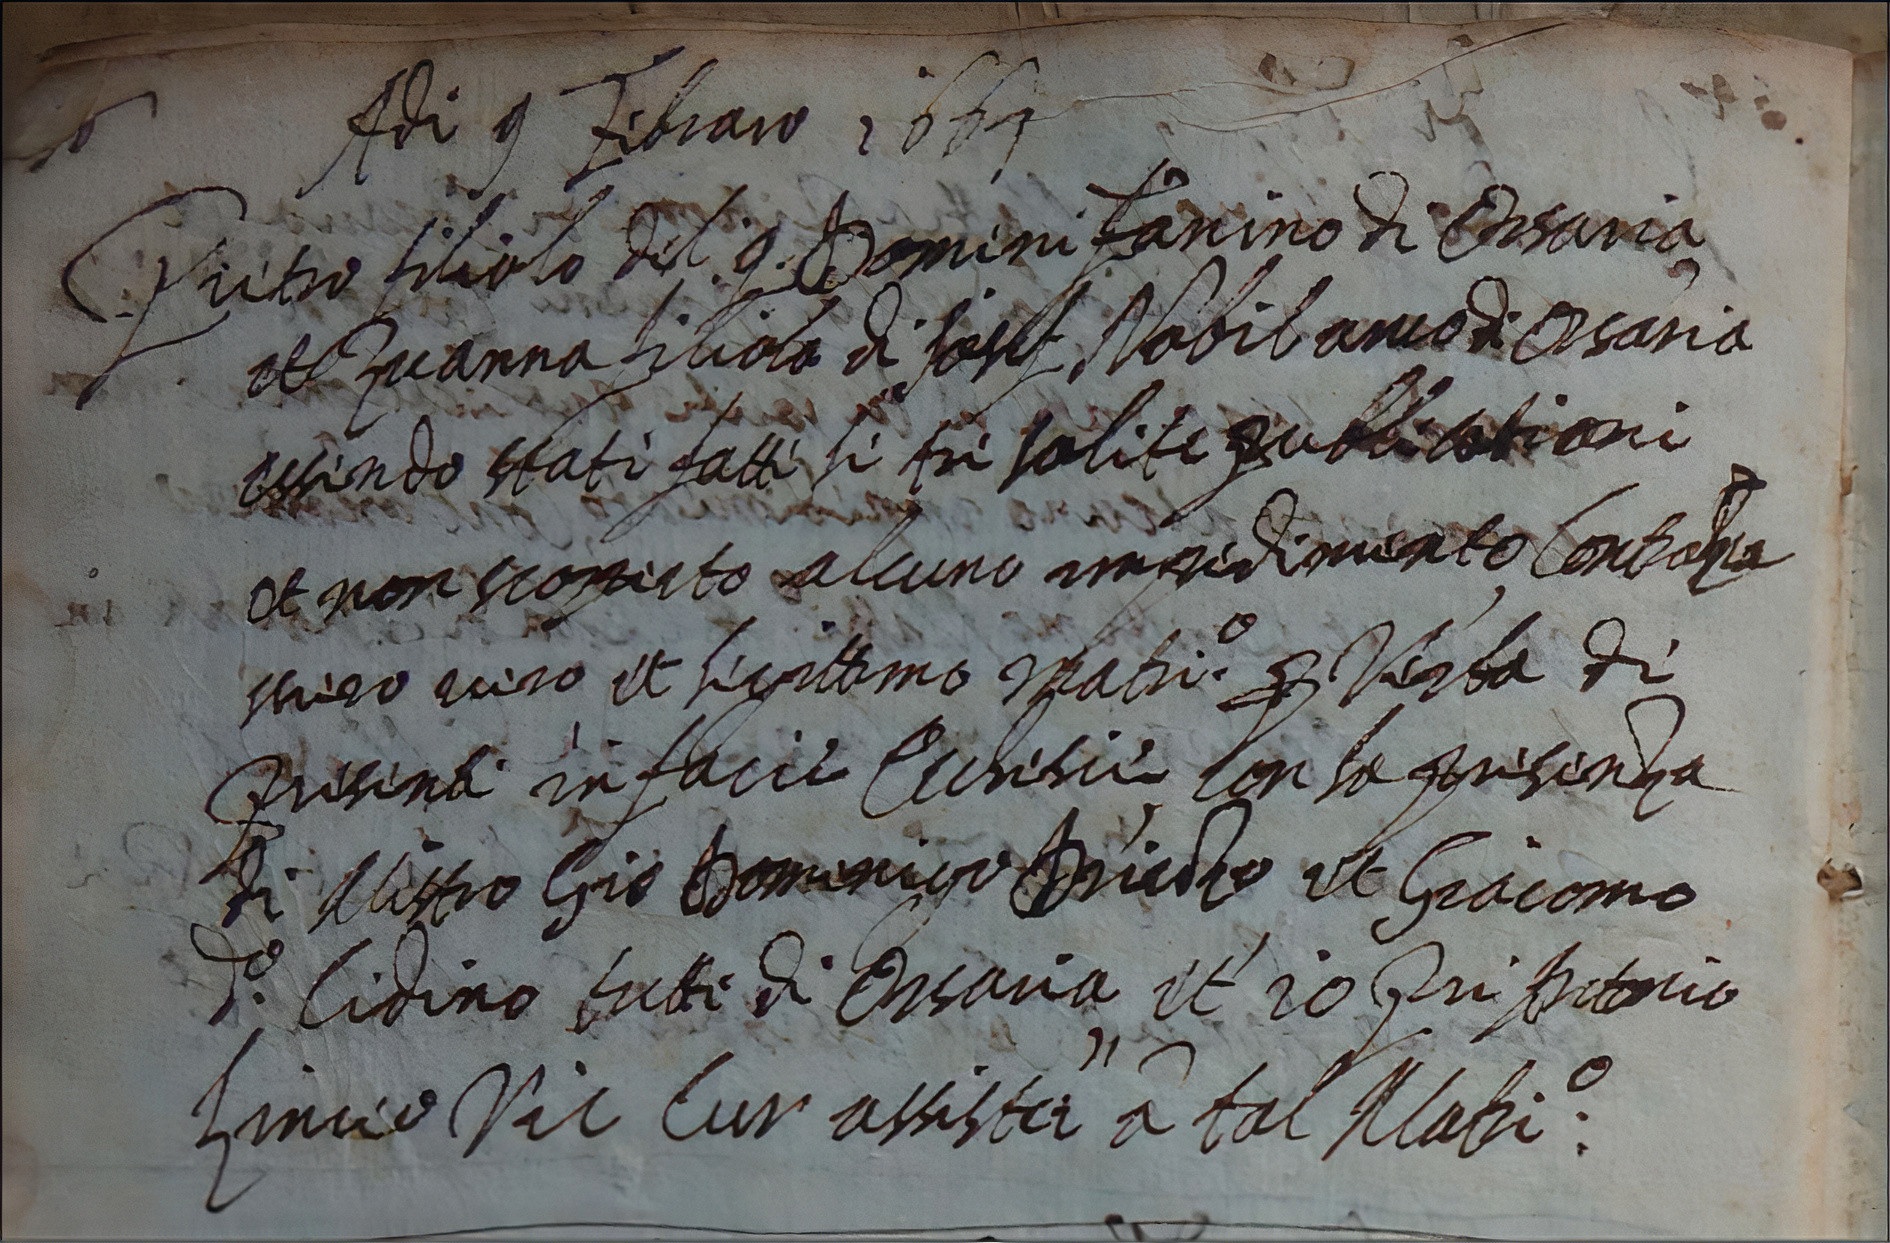 Adi 9 Febraro 1667
Pietro filiolo del q. Domini Fanino di Orsaria
et Zuanna filiola di Josef Nobil anco di Orsaria
essendo stati fatti le tre solite publicationi
et non scoperto alcuno impedimento Contra
vero et legittimo Matri.º p Verba di
presenti in facie Ecclesie con la presenza
di Mistro Gio Domenigo et Giacomo
d.º Cidino tutti di Orsaria et io Pre Antonio
Vic Cur assistei a tal Matri.º